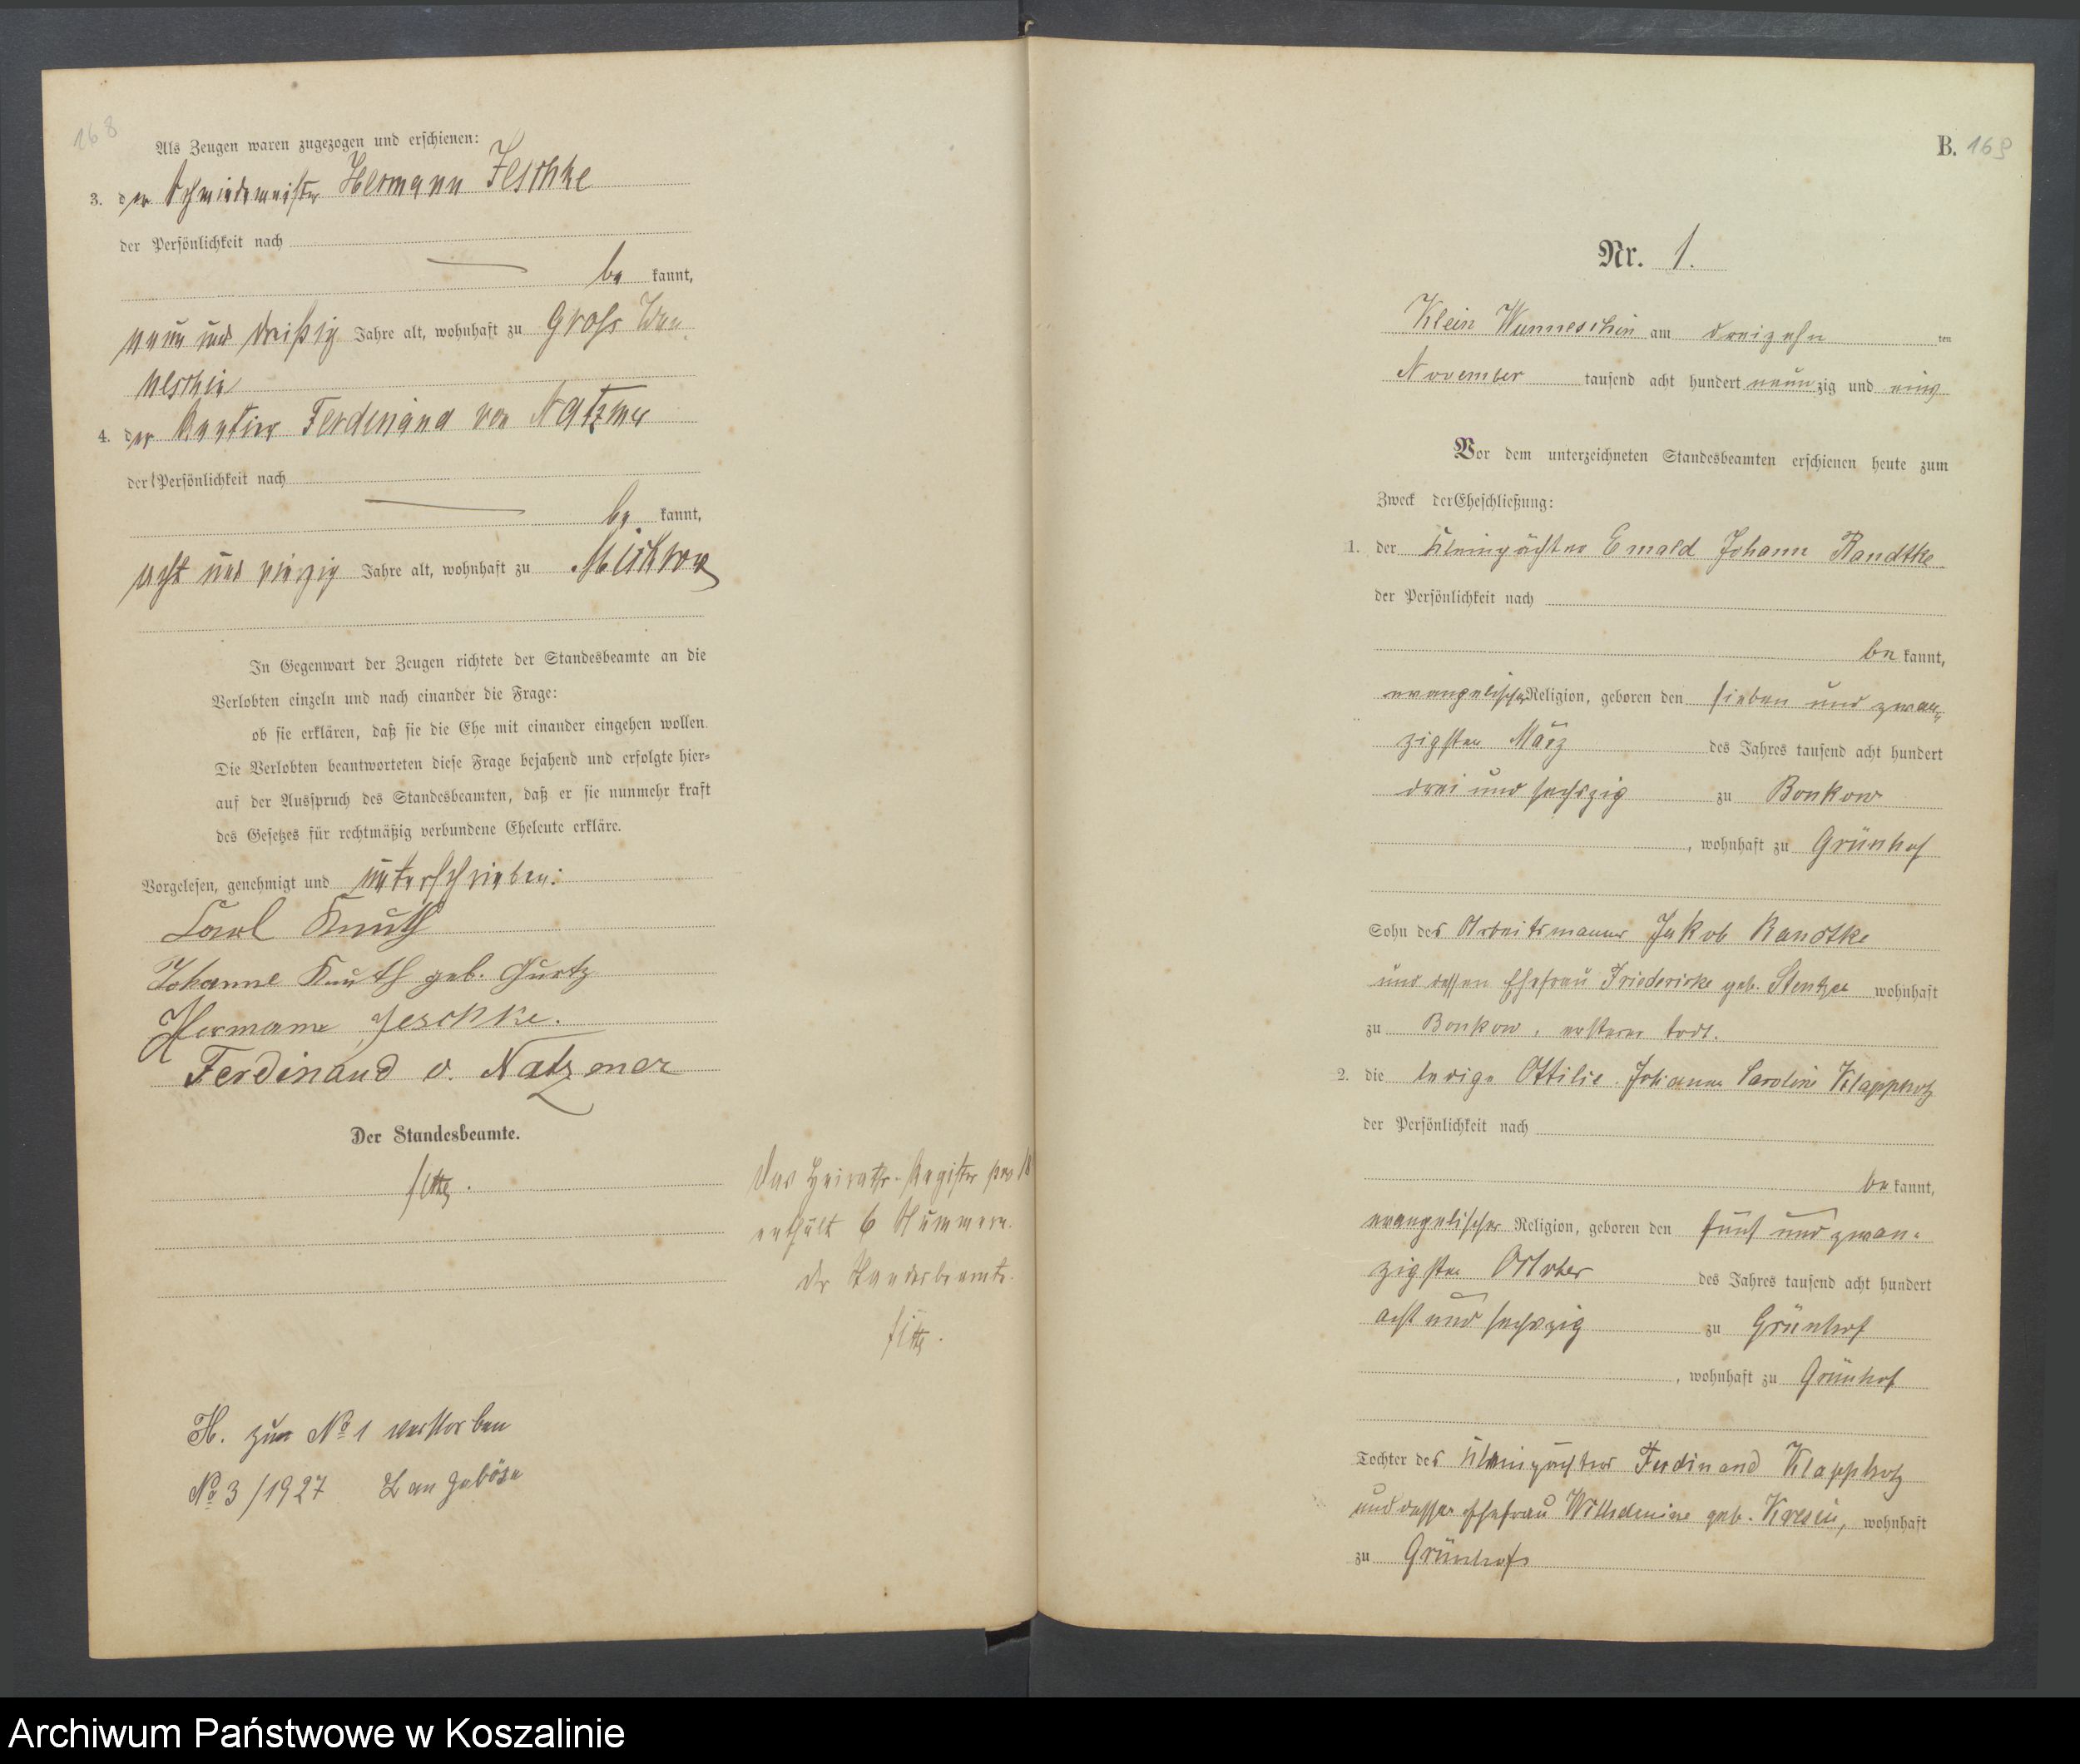 168
Als Zeugen waren zugezogen und erschienen:
3. der Schmiedemeister Hermann Jeschke
der Persönlichkeit nach
be kannt,
neun und dreißig Jahre alt, wohnhaft zu Gross Wun-
neschin
4. der Rentier Ferdinand von Natzmer
der Persönlichkeit nach
be kannt,
acht und vierzig Jahre alt, wohnhaft zu Mischow
In Gegenwart der Zeugen richtete der Standesbeamte an die
Verlobten einzeln und nach einander die Frage:
ob sie erklären, daß sie die Ehe mit einander eingehen wollen.
Die Verlobten beantworteten diese Frage bejahend und erfolgte hier=
auf der Ausspruch des Standesbeamten, daß er sie nunmehr kraft
des Gesetzes für rechtmäßig verbundene Eheleute erkläre.
Vorgelesen, genehmigt und unterschrieben:
Carl Knuth
Johanne Knuth geb. Gurtz
Hermann Jeschke.
Ferdinand v. Natzmer
Der Standesbeamte.
Das Heiraths-Register pro 18
enthält 6 Nummern.
Der Standesbeamte.
H. zu No 1 verstorben
No 3/1927 Langeböse
B. 169
Nr. 1.
Klein Wunneschin am dreizehn ten
November tausend acht hundert neun zig und eins
Vor dem unterzeichneten Standesbeamten erschienen heute zum
Zweck der Eheschließung:
1. der Kleinpächter Ewald Johann Randtke
der Persönlichkeit nach
be kannt,
evangelischer Religion, geboren den sieben und zwan-
zigsten März des Jahres tausend acht hundert
drei und sechszig zu Bonkow
, wohnhaft zu Grünhof
Sohn des Arbeitsmanns Jakob Randtke
und dessen Ehefrau Friedericke geb. wohnhaft
zu Bonkow, ersterer todt.
2. die ledige Ottilie Johanne Caroline Klappholz
der Persönlichkeit nach
be kannt,
evangelischer Religion, geboren den fünf und zwan-
zigsten October des Jahres tausend acht hundert
acht und sechszig zu Grünhof
, wohnhaft zu Grünhof
Tochter des Kleinpächters Ferdinand Klappholz
und dessen Ehefrau Wilhelmine geb. Kresin, wohnhaft
zu Grünhof
Archiwum Państwowe w Koszalinie